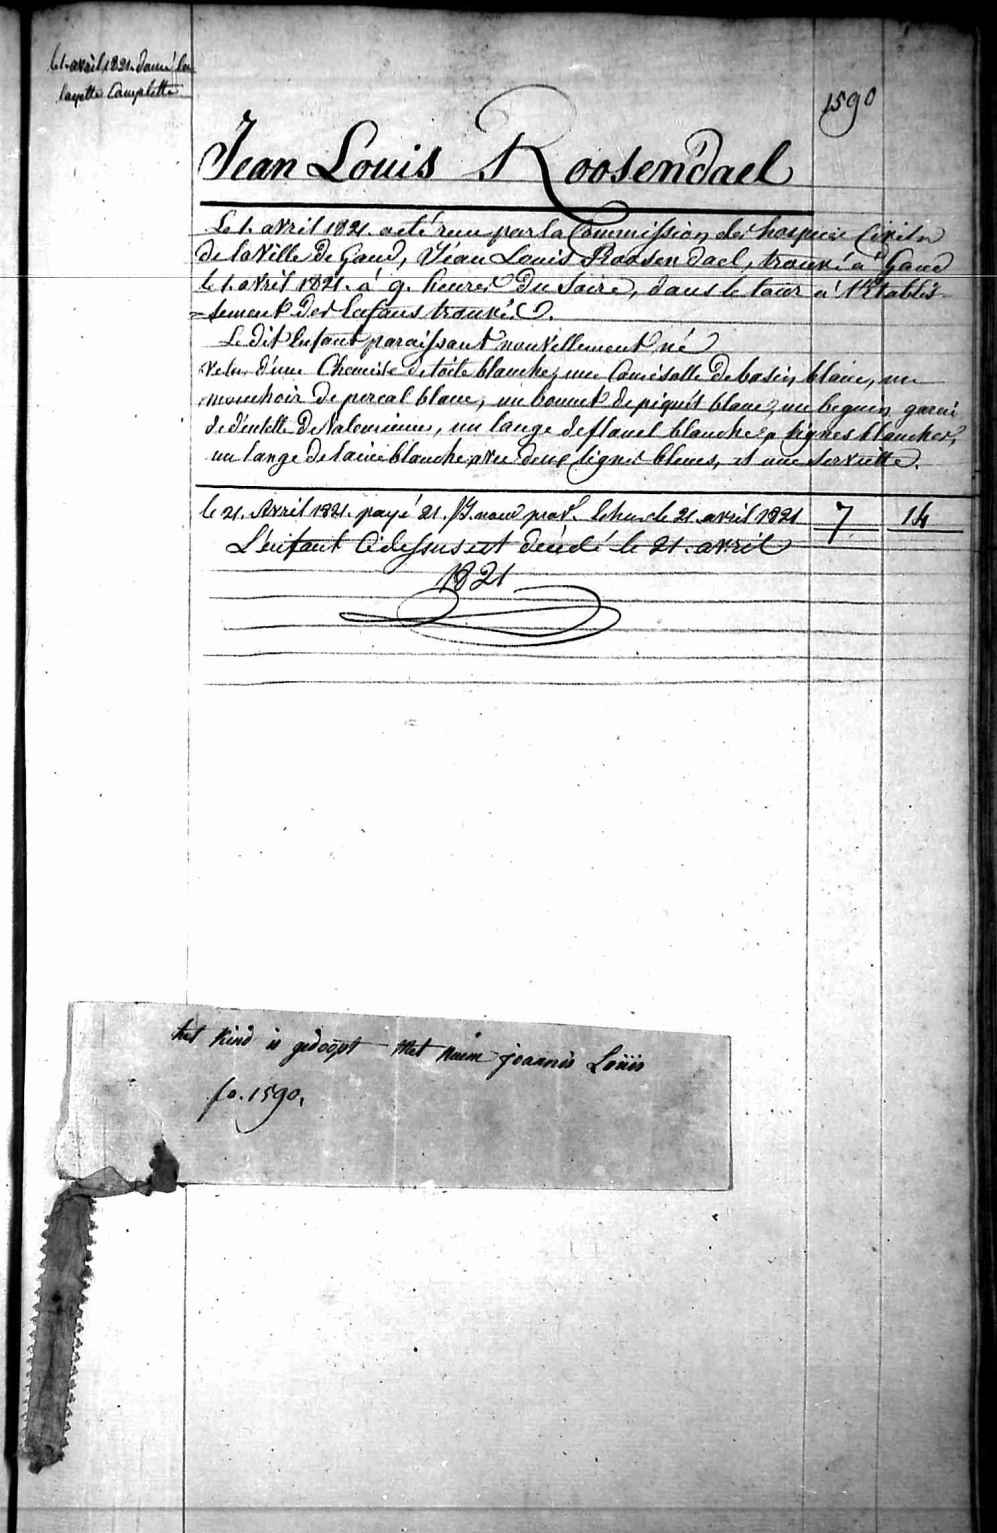 le 1. avril 1821. donné la
layette Complette
1590
Jean Louis Roosendael
Le 1. avril 1821. a été reçu par la Commission des hospices Civils
de la Ville de Gand, Jéan Louis Roosendael, trouvé à Gand
le 1. avril 1821. à 9. heures Du Soire, dans le tour à l'Etablis
=sement Des Enfans trouvés.
Le dit Enfant paraissant nouvellement né
vetu d'une Chemise de toile blanche, une Camisolle De basin blanc, un
mouchoir de percal blanc, un bonnet de piquét blanc, un beguin garni
de déntelle De Valencienne, un lange de flanel blanche a lignes blanches,
un lange de laine blanche avec deux lignes bleues, et une Serviette.
le 21. Avril 1821. payé 21. le 21. avril 1821 7 14
L'enfant Cidessus est décédé le 21. avril
1821
het Kind is gedoopt met naem joannis Loüis
fo. 1590.